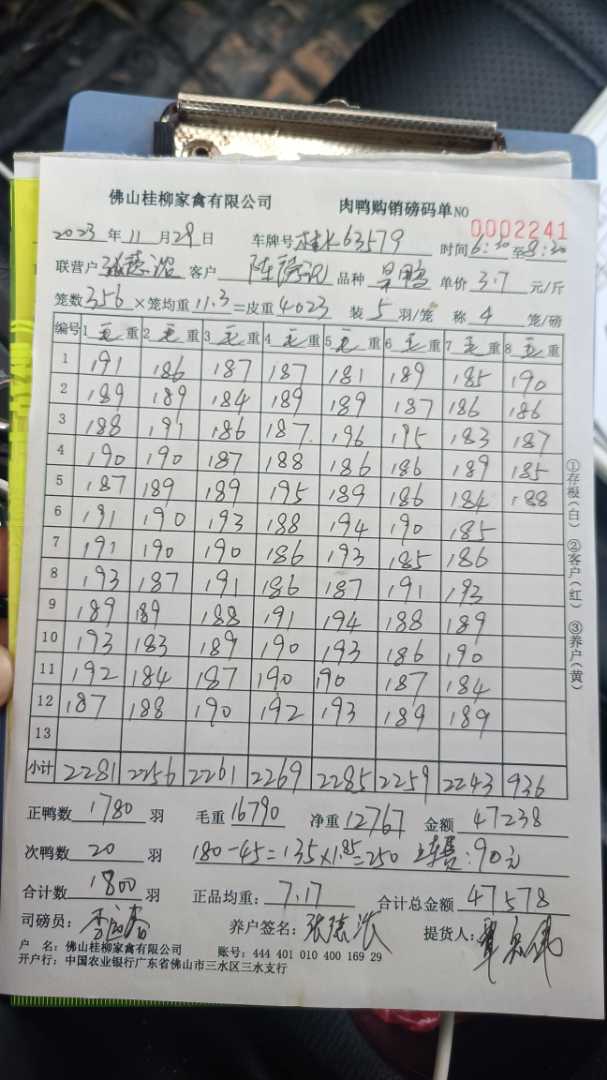 佛山桂柳家禽有限公司 肉鸭购销磅码单 NO 0002241
2023 年 11 月 29 日 车牌号 桂K63579 时间 6:30 至 8:30
联营户 张 客户 陈 品种 单价 3.7 元/斤
笼数 356 ×笼均重 11.3 =皮重 4023 装 5 羽/笼 称 4 笼/磅
编号 1 毛 重 2 毛 重 3 毛 重 4 毛 重 5 毛 重 6 毛 重 7 毛 重 8 毛 重
1 191 186 187 187 181 189 185 190
2 189 189 184 189 189 187 186 186
3 188 191 186 187 196 195 183 187
4 190 190 187 188 186 186 189 185
5 187 189 189 195 189 186 184 188
6 191 190 193 188 194 190 185
7 191 190 190 186 193 185 186
8 193 187 191 186 187 191 193
9 189 189 188 191 194 188 189
10 193 183 189 190 193 186 190
11 192 184 187 190 190 187 184
12 187 188 190 192 193 189 189
13
小计 2281 2256 2261 2269 2285 2259 2243 936
①存根(白) ②客户(红) ③养户(黄)
正鸭数 1780 羽 毛重 16790 净重 12767 金额 47238
次鸭数 20 羽 180-45=135×1.85=250 车费:90元
合计数 1800 羽 正品均重: 7.17 合计总金额 47578
司磅员: 李 养户签名: 张 提货人:
户 名: 佛山桂柳家禽有限公司 账号: 444 401 010 400 169 29
开户行: 中国农业银行广东省佛山市三水区三水支行